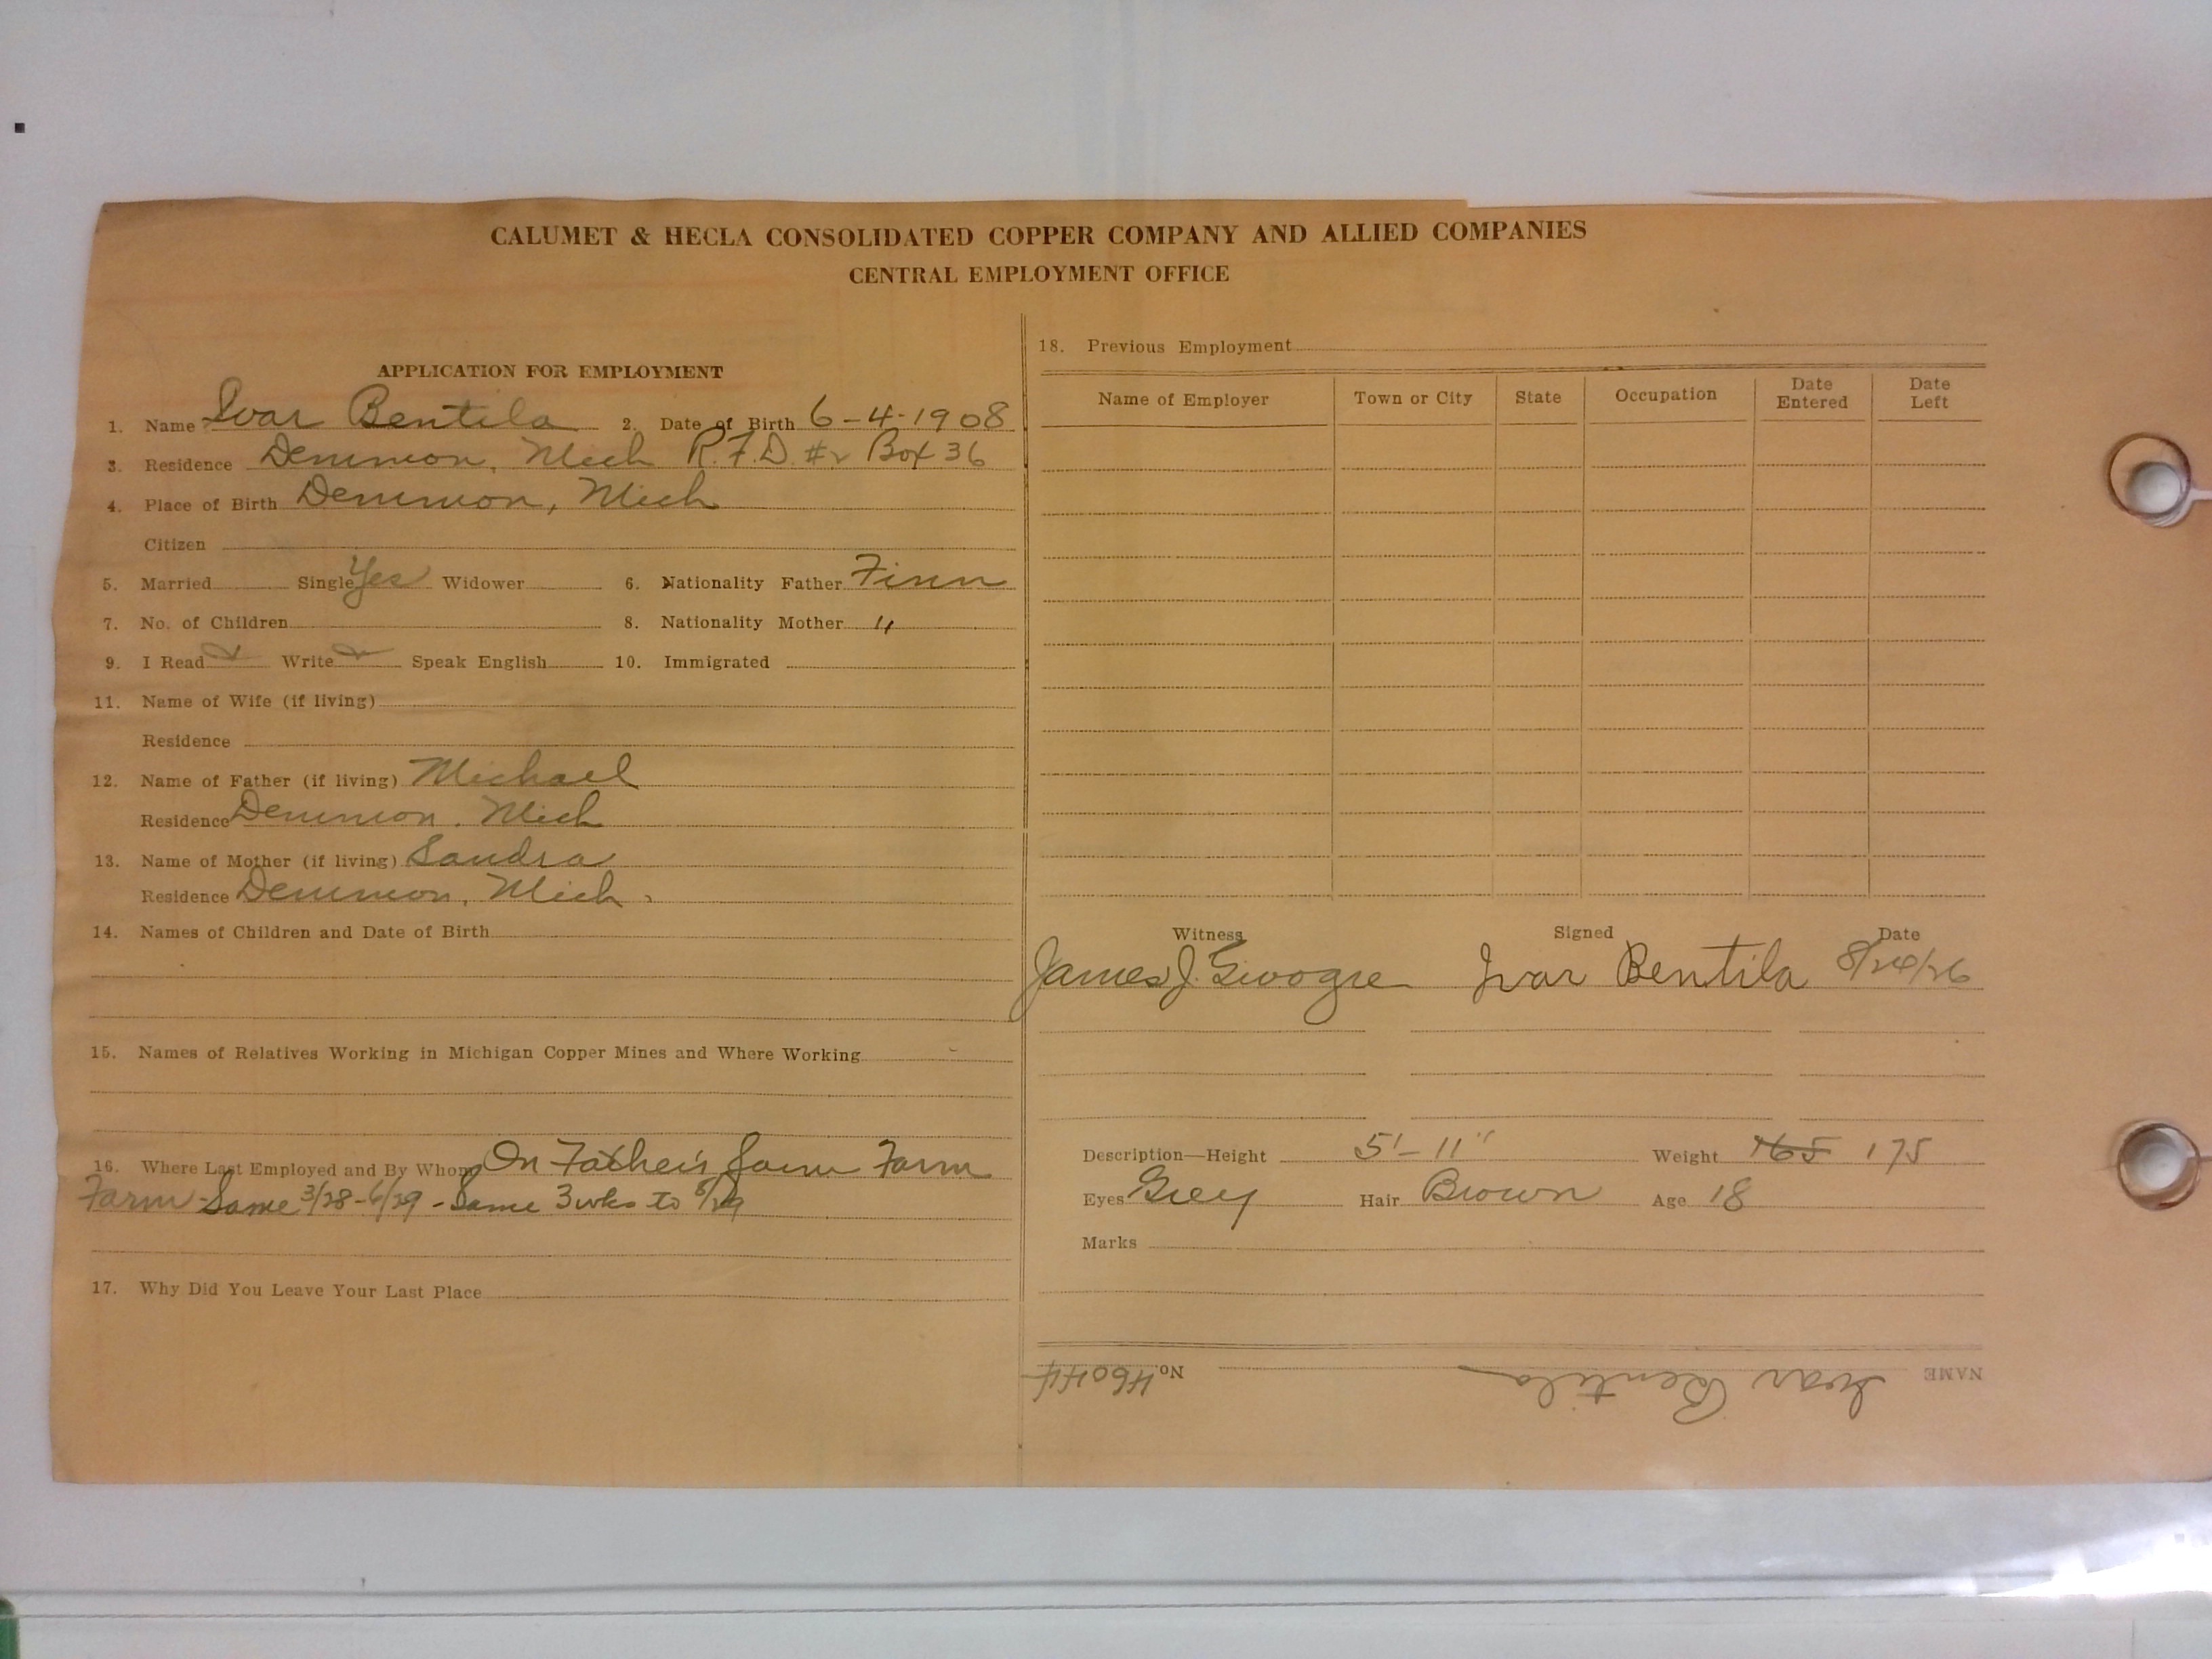 CALUMET & HECLA CONSOLIDATED COPPER COMPANY AND ALLIED COMPANIES
CENTRAL EMPLOYMENT OFFICE
APPLICATION FOR EMPLOYMENT
1. Name Ivar Bentila 2. Date of Birth 6-4-1908
3. Residence Demmon, Mich R.F.D. #2 Box 36
4. Place of Birth Demmon, Mich
Citizen
5. Married Single Yes Widower 6. Nationality Father Finn
7. No. of Children 8. Nationality Mother "
9. I Read Write Speak English 10. Immigrated
11. Name of Wife (if living)
Residence
12. Name of Father (if living) Michael
Residence Demmon, Mich
13. Name of Mother (if living) Sandra
Residence Demmon, Mich.
14. Names of Children and Date of Birth
15. Names of Relatives Working in Michigan Copper Mines and Where Working
16. Where Last Employed and By Whom On Father's farm Farm
Farm - Same 3/28-6/29 - Same 3 wks to 8/29
17. Why Did You Leave Your Last Place
18. Previous Employment
Name of Employer Town or City State Occupation Date Entered Date Left
Witness Signed Date
James J. Ivar Bentila 8/24/26
Description—Height 5'-11" Weight 165 175
Eyes Grey Hair Brown Age 18
Marks
NAME Ivar Bentila No. 46044